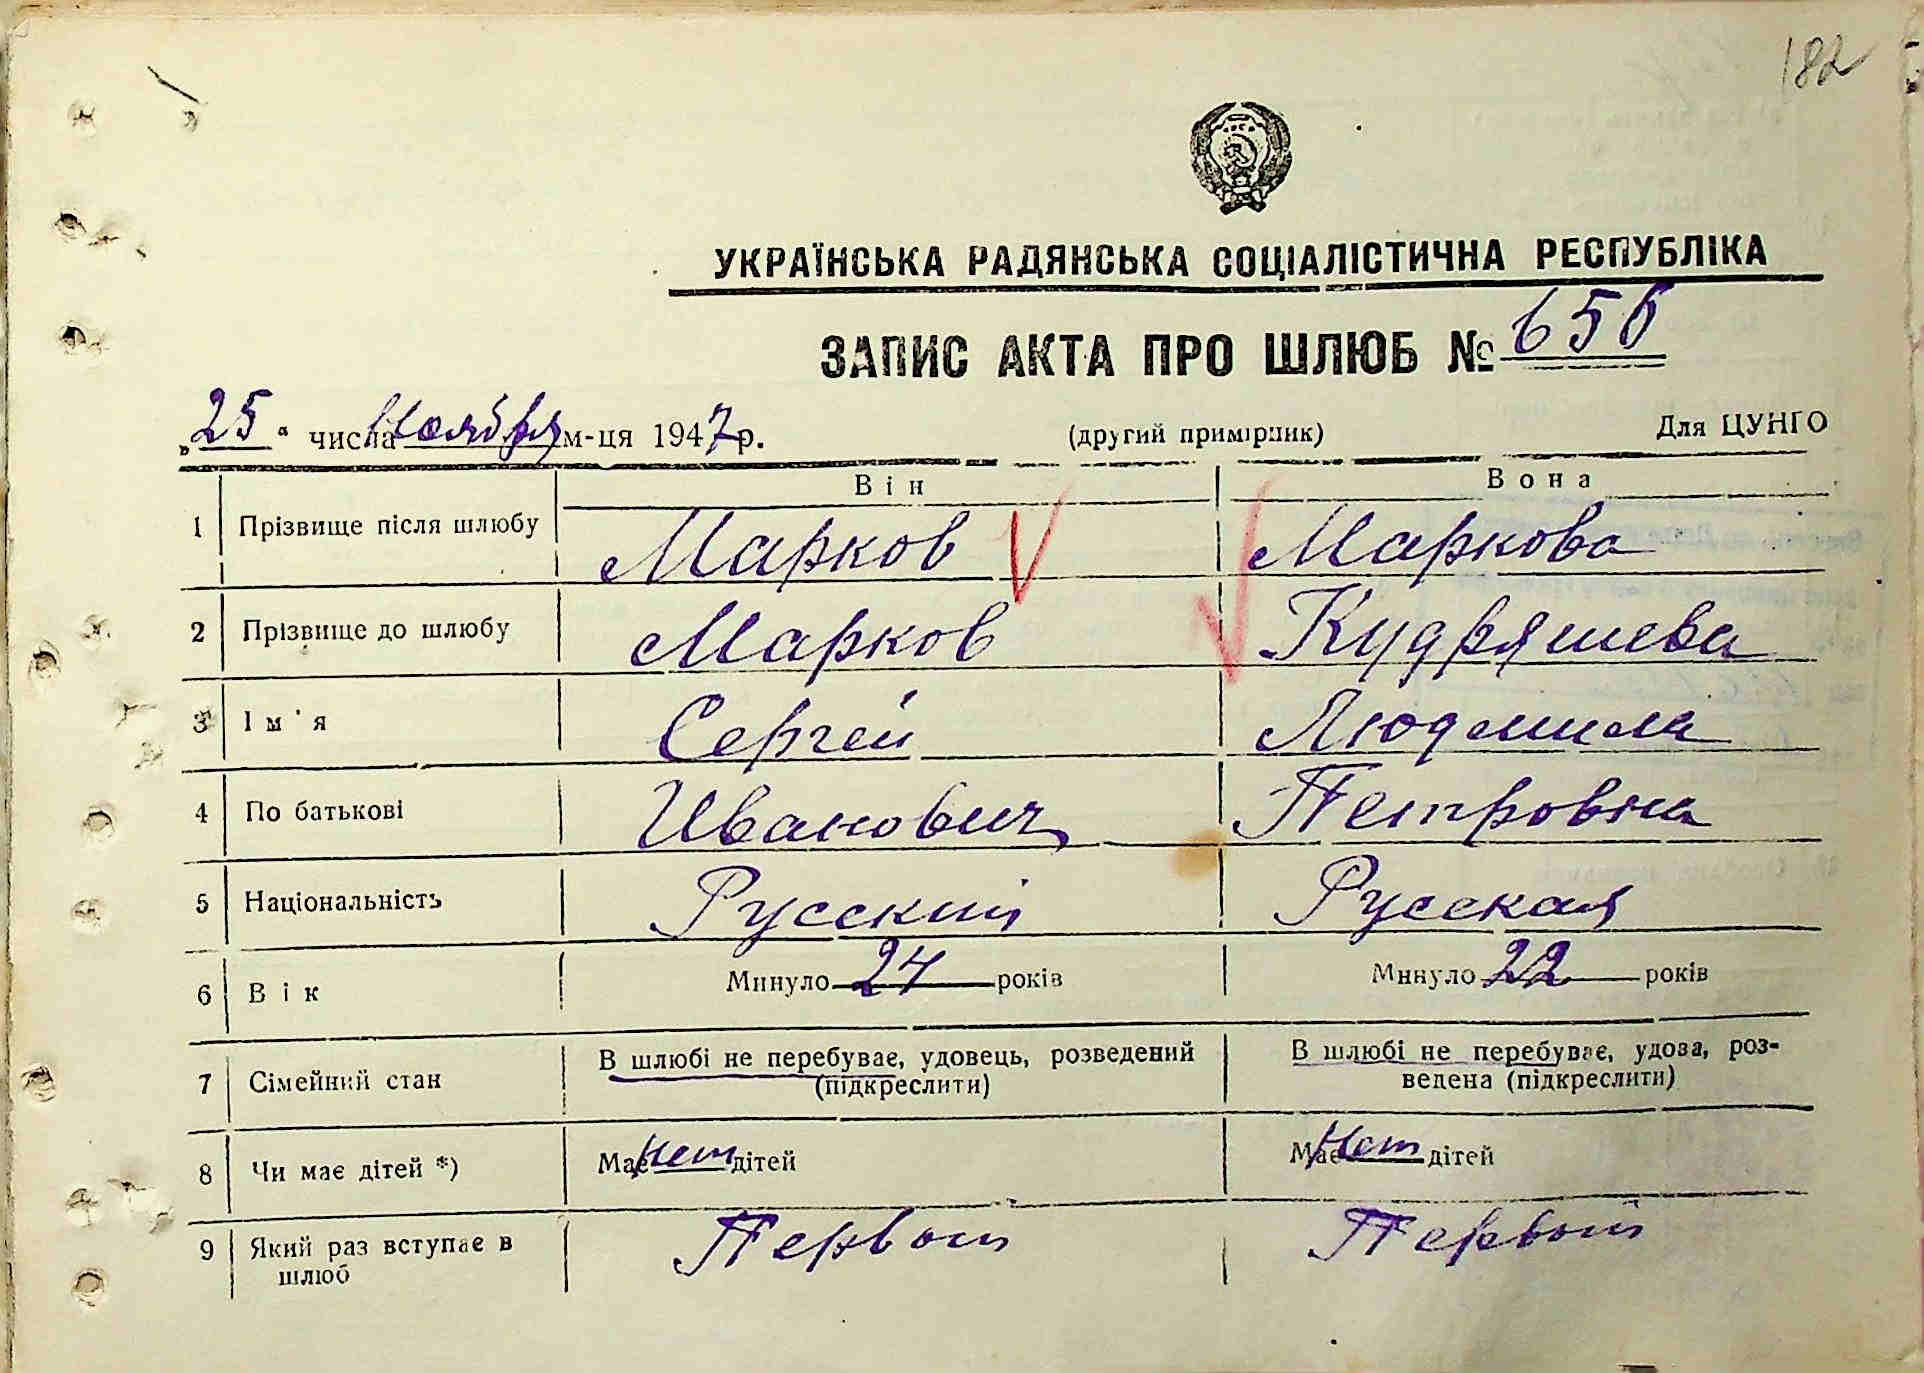 182
УКРАЇНСЬКА РАДЯНСЬКА СОЦІАЛІСТИЧНА РЕСПУБЛІКА
ЗАПИС АКТА ПРО ШЛЮБ № 656
„25“ числа Ноября м-ця 1947 р. (другий примірник) Для ЦУНГО
Він Вона
1 Прізвище після шлюбу Марков Маркова
2 Прізвище до шлюбу Марков Кудряшева
3 Ім'я Сергей Людмила
4 По батькові Иванович Петровна
5 Національність Русский Русская
6 Вік Минуло 24 років Минуло 22 років
7 Сімейний стан В шлюбі не перебуває, удовець, розведений (підкреслити) В шлюбі не перебуває, удова, роз-
ведена (підкреслити)
8 Чи має дітей *) Має нет дітей Має нет дітей
9 Який раз вступає в Первый Первый
шлюб